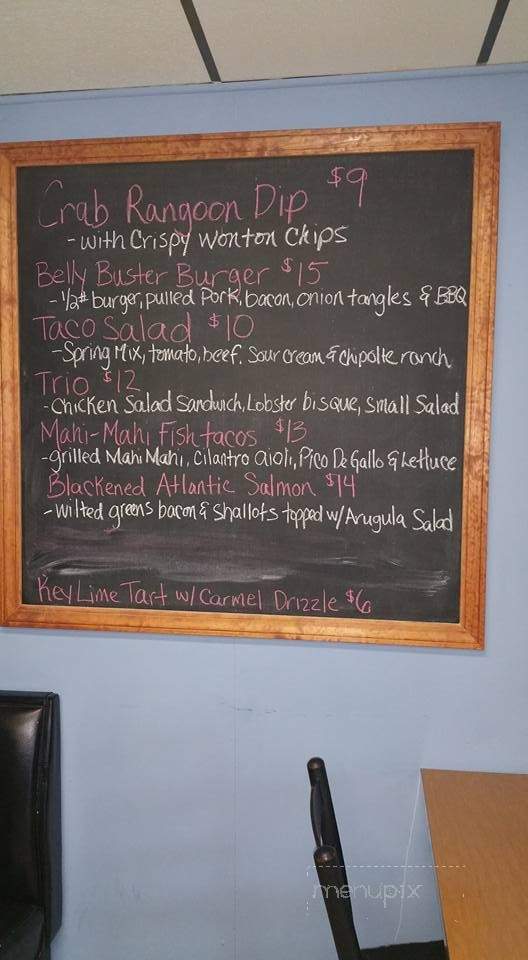 Crab Rangoon Dip $9
- with Crispy Wonton Chips
Belly Buster Burger $15
- 1/2# burger, pulled Pork, bacon, onion tangles & BBQ
Taco Salad $10
- Spring Mix, tomato, beef, Sour Cream & Chipolte ranch
Trio $12
- Chicken Salad Sandwich, Lobster bisque, Small Salad
Mahi-Mahi Fish tacos $13
- grilled Mahi Mahi, Cilantro aioli, Pico De Gallo & Lettuce
Blackened Atlantic Salmon $14
- wilted greens bacon & Shallots topped w/ Arugula Salad
Key Lime Tart w/ Carmel Drizzle $6
menupix